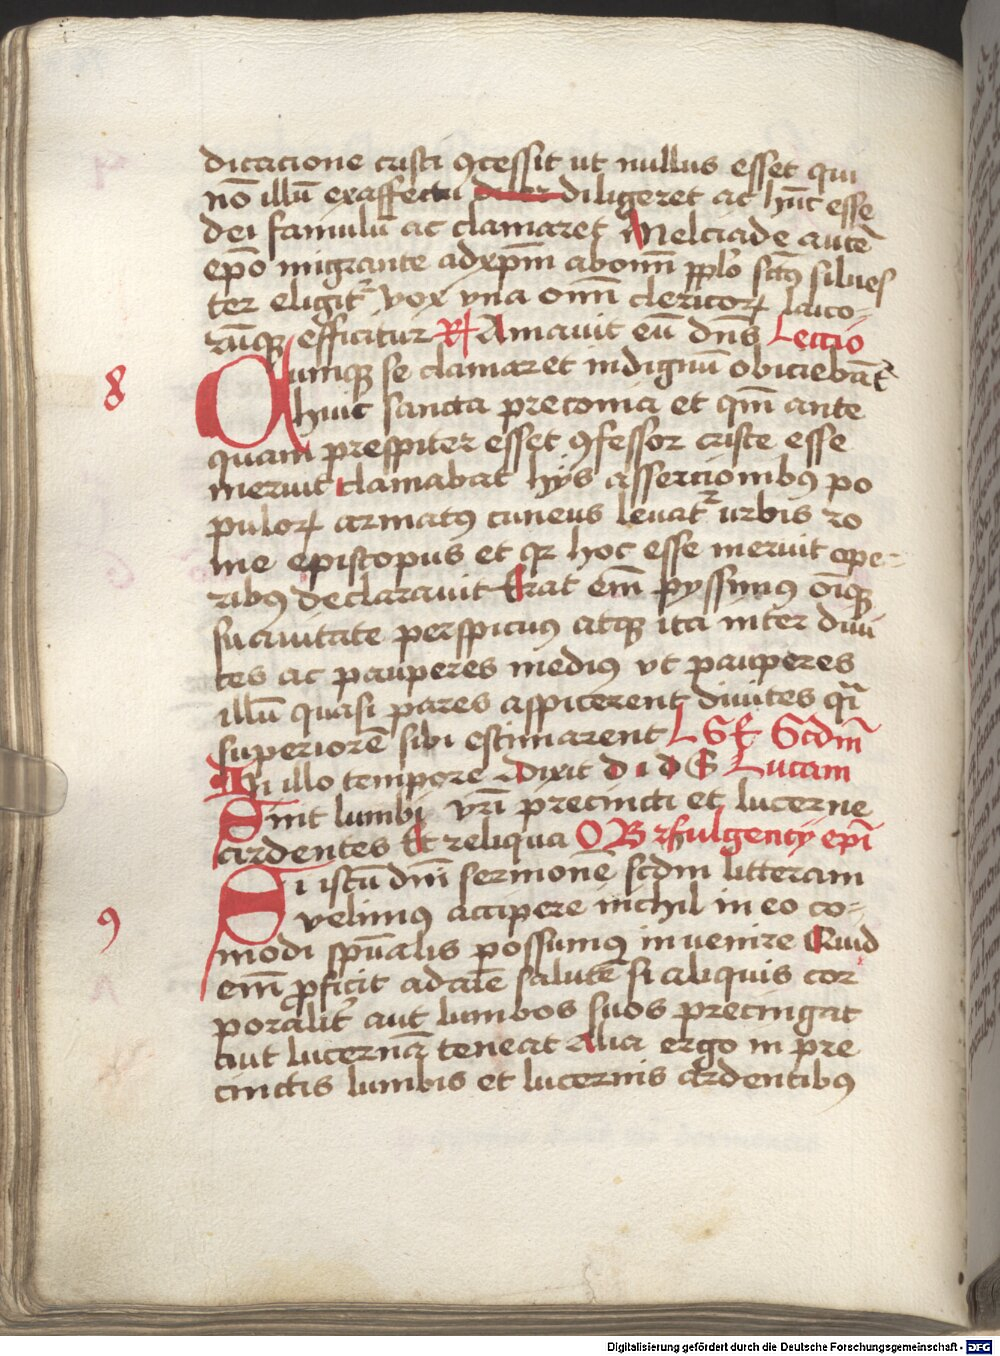 dicacione cristi ꝯcessit ut nullus esset qui
nō illū ex affectu diligeret ac hūc esse
dei famulū ac clamaret Melciade autē
ep̄o migrante ad xp̄m ab om̄i pplo sct̄us silues
ter eligitr vox vna om̄i clericoꝝ laico-
rūqꝫ efficitur R Amauit eū dn̄s Lectio
8
Cumqꝫ se clamaret indignū obiciebātr
huic sancta preconia et qm̄ ante
quam prespiter esset ꝯfessor criste esse
meruit clamabat hijs assercionibꝰ po
puloꝝ armatꝰ cuneus leuatr urbis ro
me episcopus et qr hoc esse meruit ope-
ribꝰ declarauit Erat em̄ pyssimꝰ oīqꝫ
suauitate perspicuꝰ atqꝫ ita inter diui
tes ac pauperes mediꝰ vt pauperes
illū quasi pares aspicerent diuites qī
superiorē sibi estimarent L S E Scdm̄
In illo tempore dixit d i d S Lucam
Sint lumbi vr̄i precincti et lucerne
ardentes Et reliqua O B fulgencij ep̄i
9
Si istū dn̄i sermonē scdm litteram
velimꝰ accipere nichil in eo co-
modi sp̄ualis possumꝰ inuenire Quid
em̄ ꝓficit ad aīe salutē si aliquis cor
poralitr aut lumbos suos precingat
aut lucernā teneat Alia ergo in pre
cinctis lumbis et lucernis ardentibꝰ
Digitalisierung gefördert durch die Deutsche Forschungsgemeinschaft - DFG